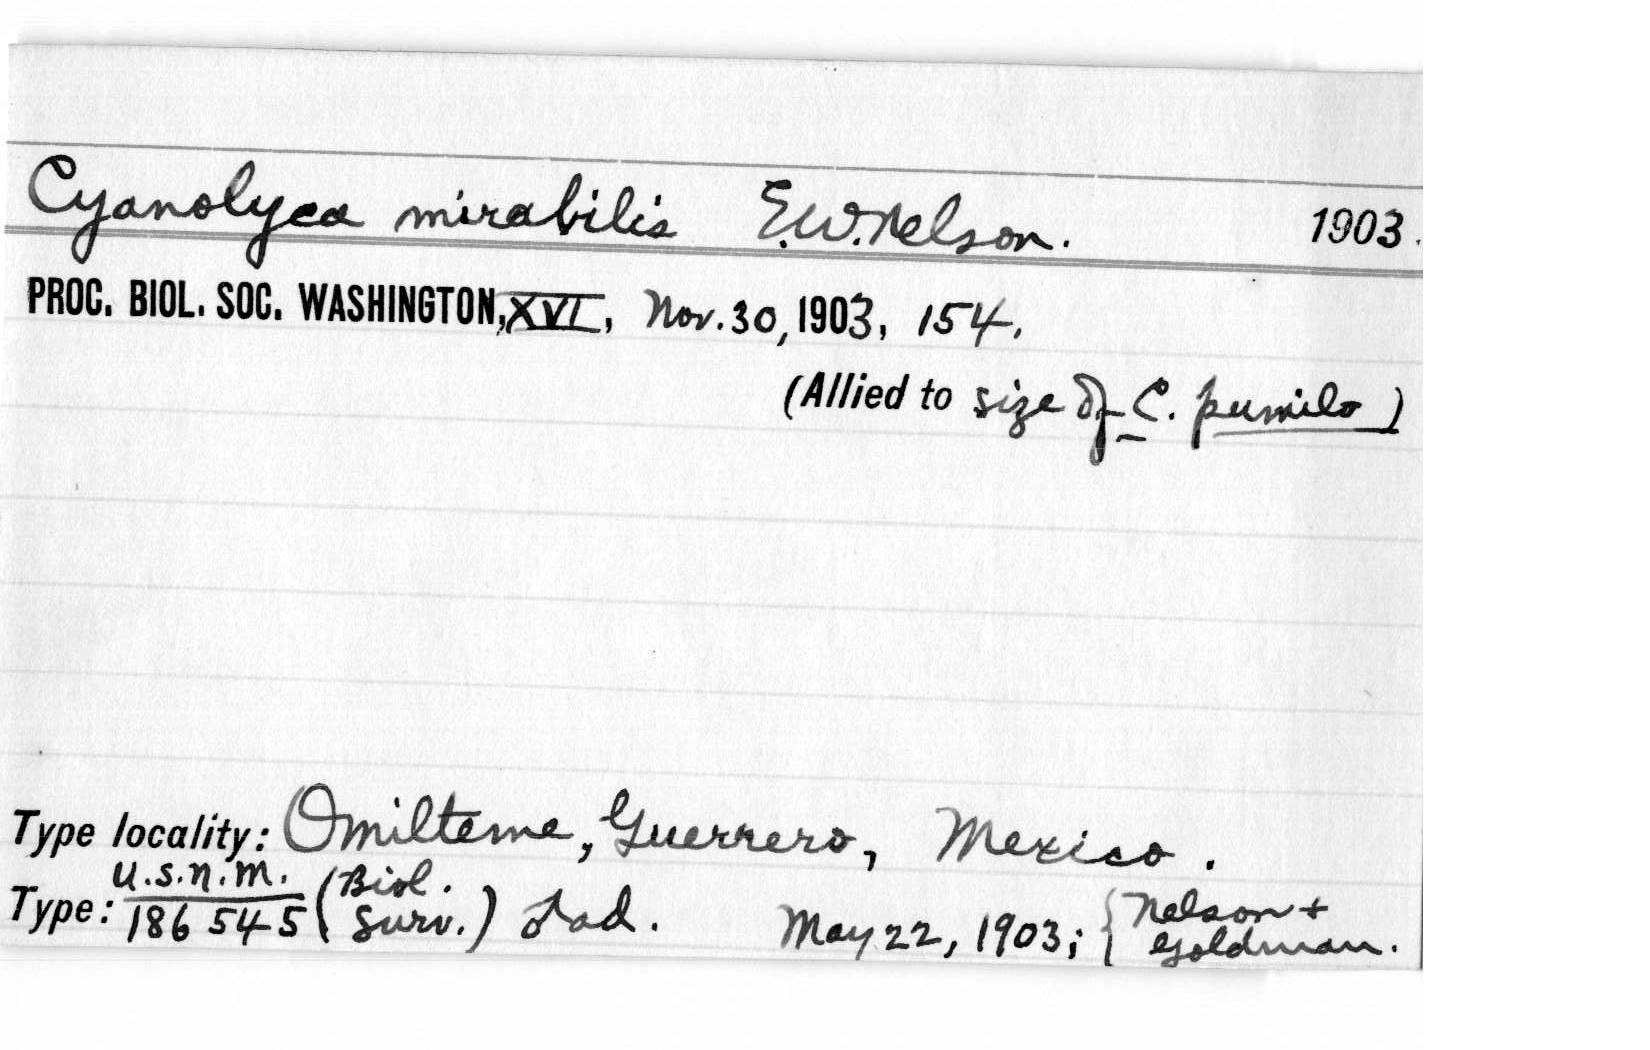 Cyanolyca mirabilis E.W.Nelson. 1903.
PROC. BIOL. SOC. WASHINGTON, XVI, Nov. 30, 1903, 154.
(Allied to size of C. pumilo)
Type locality: Omilteme, Guerrero, Mexico.
U.S.N.M.
Type: 186545 (Biol. Surv.) ♂ ad. May 22, 1903; {Nelson +
Goldman.